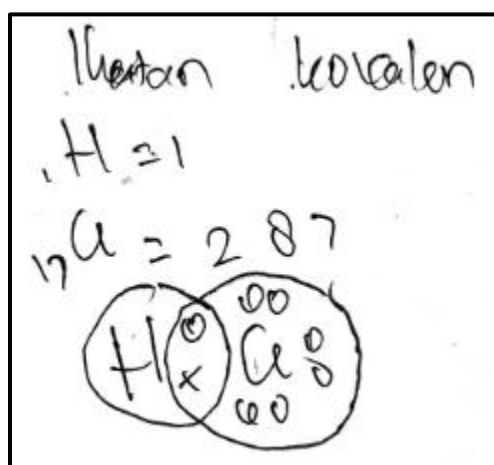 Ikatan kovalen
₁H = 1
₁₇Cl = 2 8 7
H Cl